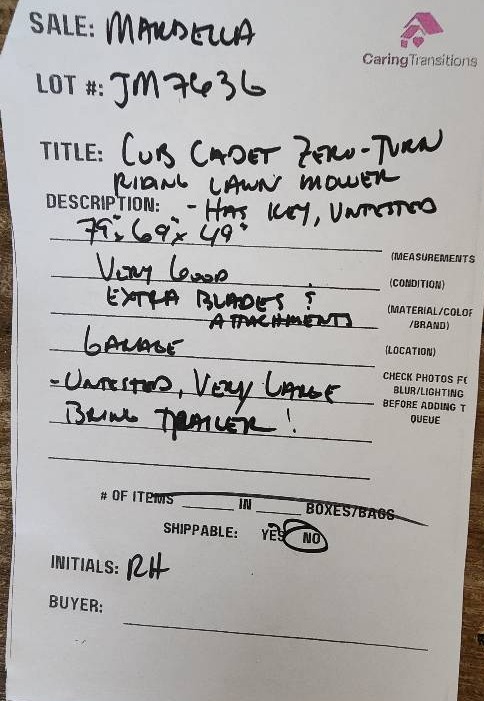 SALE: MANDELLA
CaringTransitions
LOT #: JM7636
TITLE: CUB CADET ZERO-TURN
RIDING LAWN MOWER
DESCRIPTION: - HAS KEY, UNTESTED
79"x 69"x 49"
(MEASUREMENTS
VERY GOOD
(CONDITION)
EXTRA BLADES &
ATTACHMENTS
(MATERIAL/COLOR
/BRAND)
GARAGE
(LOCATION)
- UNTESTED, VERY LARGE
BRING TRAILER!
CHECK PHOTOS FO
BLUR/LIGHTING
BEFORE ADDING T
QUEUE
# OF ITEMS ____ IN ____ BOXES/BAGS
SHIPPABLE: YES NO
INITIALS: RH
BUYER: